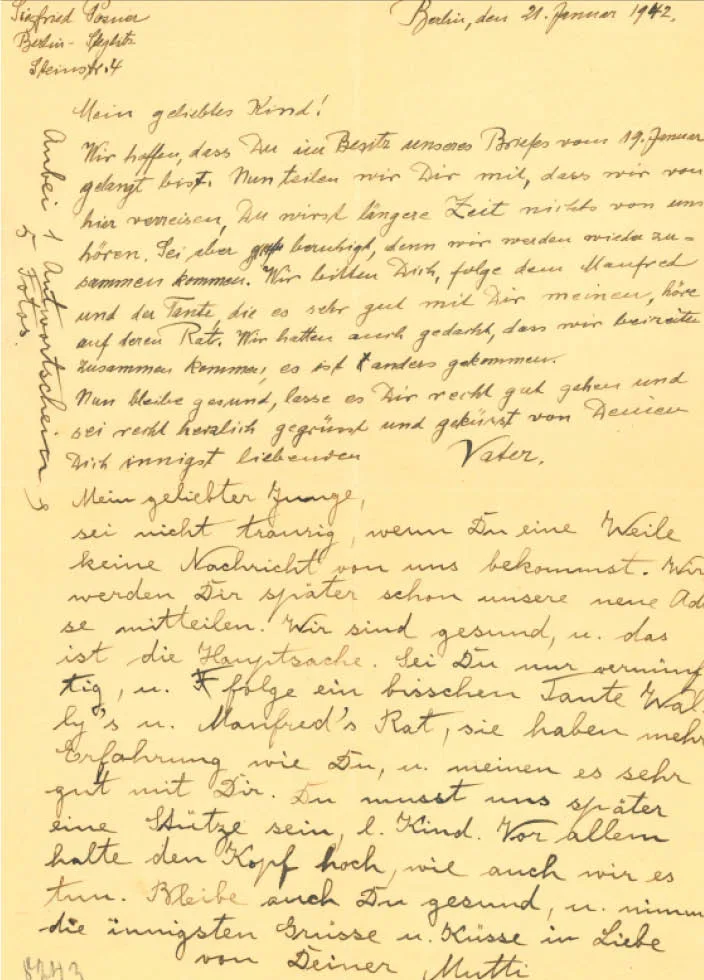 Siegfried Posner
Berlin-Steglitz
Steinstr. 4
Berlin, den 21. Januar 1942.
Mein geliebtes Kind!
Wir hoffen, dass Du im Besitz unseres Briefes vom 19. Januar
gelangt bist. Nun teilen wir Dir mit, dass wir von
hier verreisen, Du wirst längere Zeit nichts von uns
hören. Sei aber beruhigt, denn wir werden wieder zu-
sammen kommen. Wir bitten Dich, folge dem Manfred
und der Tante, die es sehr gut mit Dir meinen, höre
auf deren Rat. Wir hatten auch gedacht, dass wir beizeiten
zusammen kommen, es ist anders gekommen.
Nun bleibe gesund, lasse es Dir recht gut gehen und
sei recht herzlich gegrüsst und geküsst von Deinen
Dich innigst liebenden Vater.
Mein geliebter Junge,
sei nicht traurig, wenn Du eine Weile
keine Nachricht von uns bekommst. Wir
werden Dir später schon unsere neue Ad
se mitteilen. Wir sind gesund, u. das
ist die Hauptsache. Sei Du nur vernünf
tig, u. folge ein bisschen Tante Wal-
ly's u. Manfred's Rat, sie haben mehr
Erfahrung wie Du, u. meinen es sehr
gut mit Dir. Du musst uns später
eine Stütze sein, l. Kind. Vor allem
halte den Kopf hoch, wie auch wir es
tun. Bleibe auch Du gesund, u. nimm
die innigsten Grüsse u. Küsse in Liebe
von Deiner Mutti
Anbei 1 Antwortschein
5 Fotos.